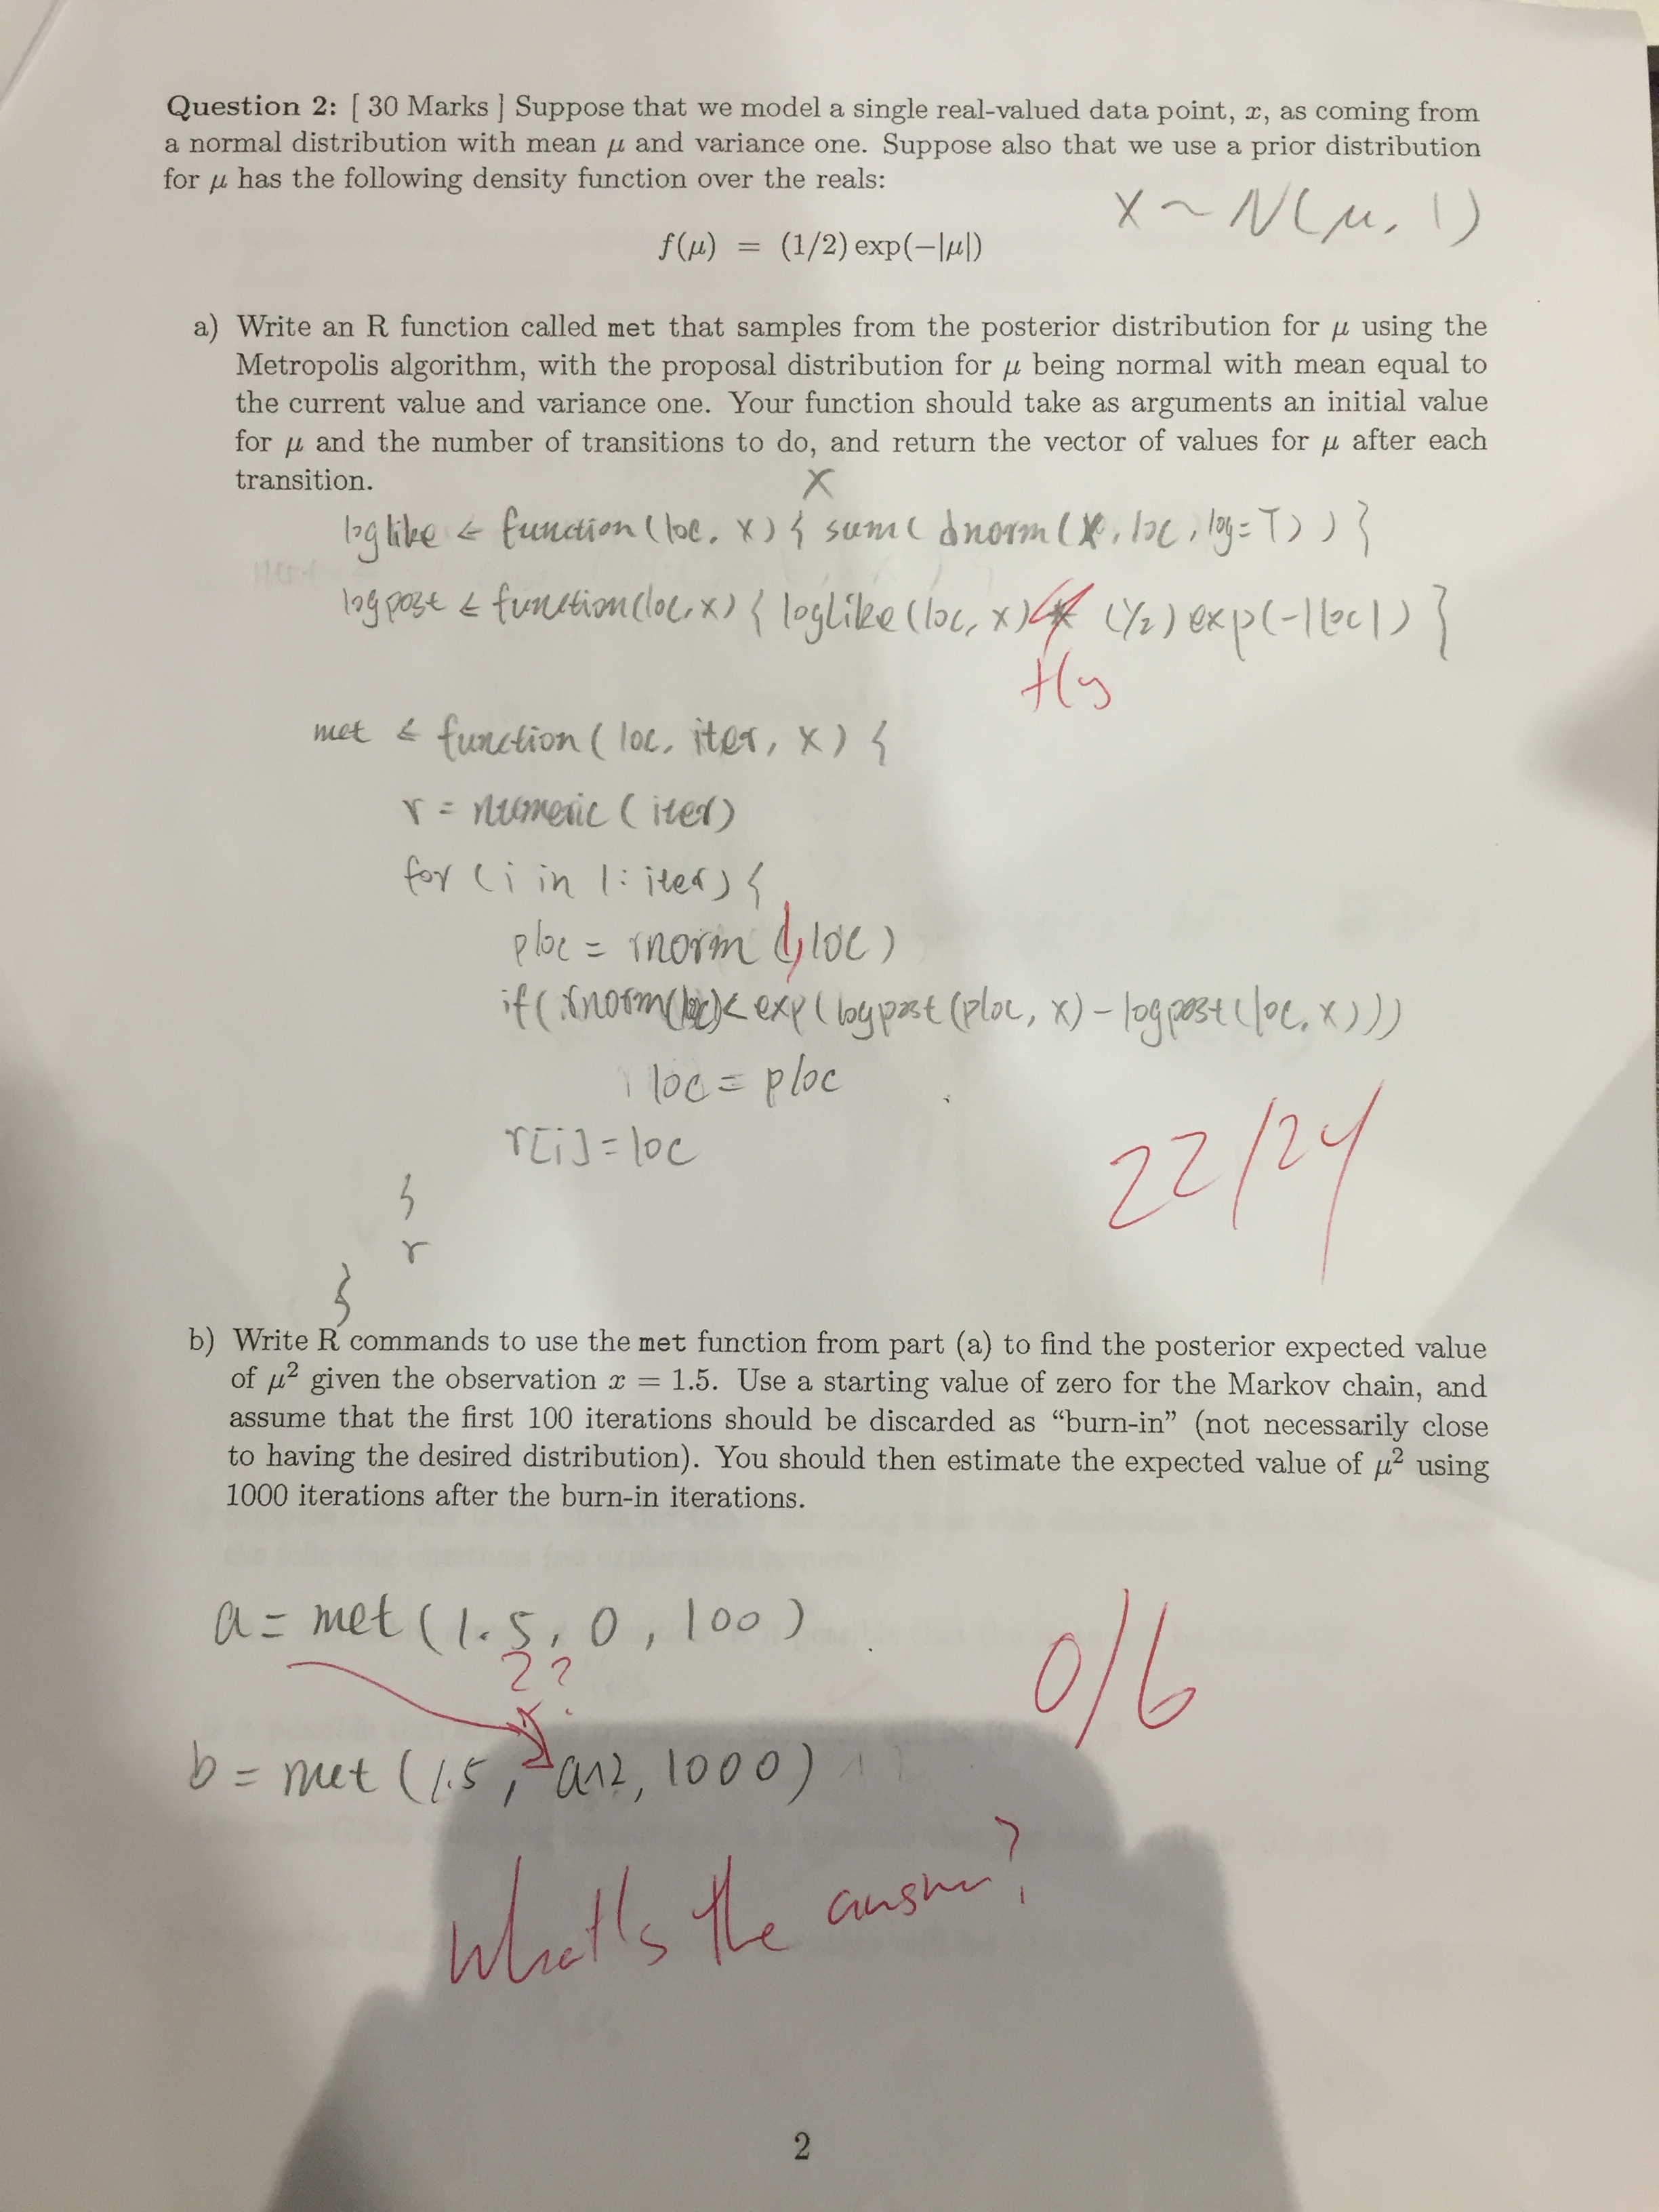 Question 2: [ 30 Marks ] Suppose that we model a single real-valued data point, x, as coming from
a normal distribution with mean μ and variance one. Suppose also that we use a prior distribution
for μ has the following density function over the reals:
X ~ N(μ, 1)
f(μ) = (1/2) exp(−|μ|)
a) Write an R function called met that samples from the posterior distribution for μ using the
Metropolis algorithm, with the proposal distribution for μ being normal with mean equal to
the current value and variance one. Your function should take as arguments an initial value
for μ and the number of transitions to do, and return the vector of values for μ after each
transition.
X
loglike ← function(loc, x) { sum( dnorm(x, loc, log=T) ) }
logpost ← function(loc, x) { loglike(loc, x) * (1/2) exp(-|loc|) }
+log
met ← function( loc, iter, x) {
r = numeric (iter)
for (i in 1: iter) {
ploc = rnorm (1, loc)
if( rnorm(loc) < exp( logpost (ploc, x) - logpost (loc, x)))
loc = ploc
r[i] = loc
22/24
}
r
}
b) Write R commands to use the met function from part (a) to find the posterior expected value
of μ² given the observation x = 1.5. Use a starting value of zero for the Markov chain, and
assume that the first 100 iterations should be discarded as “burn-in” (not necessarily close
to having the desired distribution). You should then estimate the expected value of μ² using
1000 iterations after the burn-in iterations.
a = met (1.5, 0, 100)
0/6
??
b = met (1.5, a^2, 1000)
What's the answer?
2